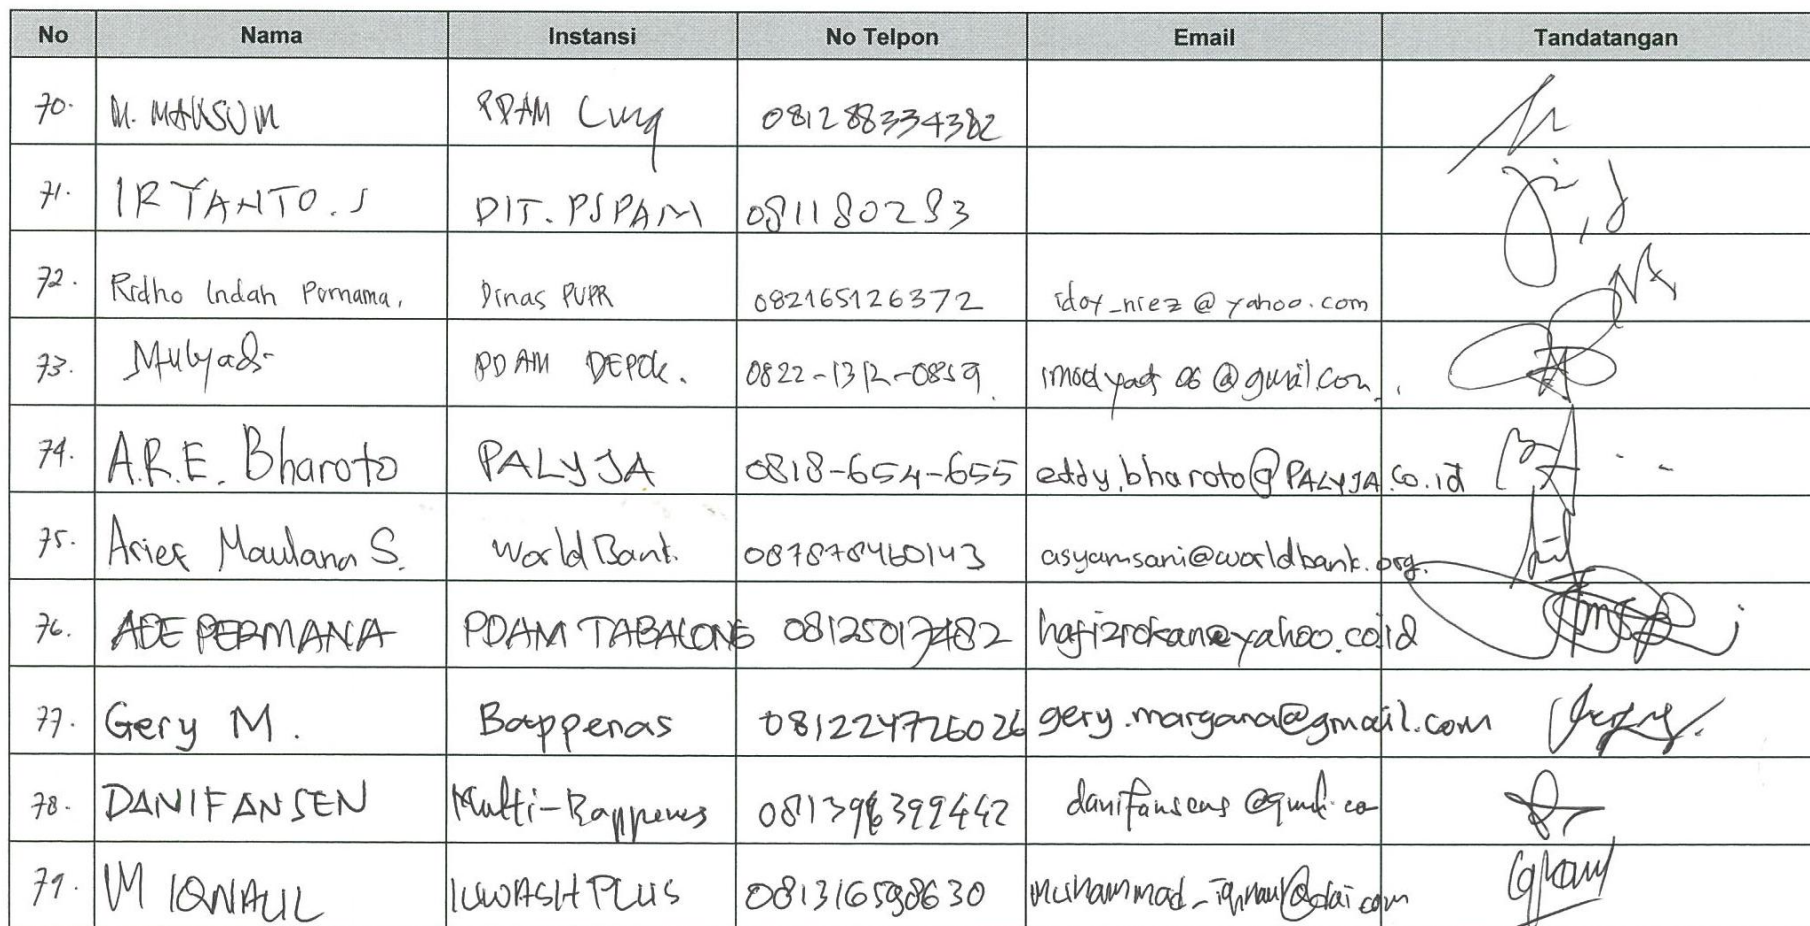 No Nama Instansi No Telpon Email Tandatangan
70. M. MAKSUM PDAM 081288334382
71. IRYANTO.S DIT. PSPAM 081180283
72. Ridho Indah Purnama. Dinas PUPR 082165126372 idoy_niez@yahoo.com
73. Mulyadi PDAM DEPOK. 0822-1312-0859
74. A.R.E. Bharoto PALYJA 0818-654-655 eddy.bharoto@PALYJA.co.id
75. Arief Maulana S. World Bank. 087878460143 asyamsani@worldbank.org.
76. ADE PERMANA PDAM TABALONG 081250177482 hafizrokan@yahoo.co.id
77. Gery M. Bappenas 081224726026 gery.margana@gmail.com
78. DANIFANSEN Multi-Bappenas
79. M IQNAUL IUWASH PLUS 081316598630 muhammad_iqnaul@dai.com